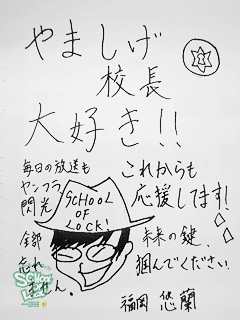 やましげ
校長
大好き!!
毎日の放送も
ヤンフラ
閃光
全部
忘れ
ません。
SCHOOL
OF
LOCK!
これからも
応援してます!
未来の鍵、
掴んでください
福岡 悠蘭
SCHOOL
OF LOCK!